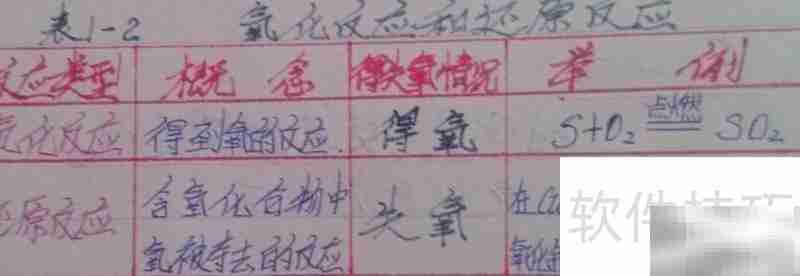 表1-2 氧化反应和还原反应
应类型 概念 得失氧情况 举例
化反应 得到氧的反应. 得氧 S+O₂ 点燃 SO₂
原反应 含氧化合物中 失氧 在Cu
氧被夺去的反应 氧化
软件技巧